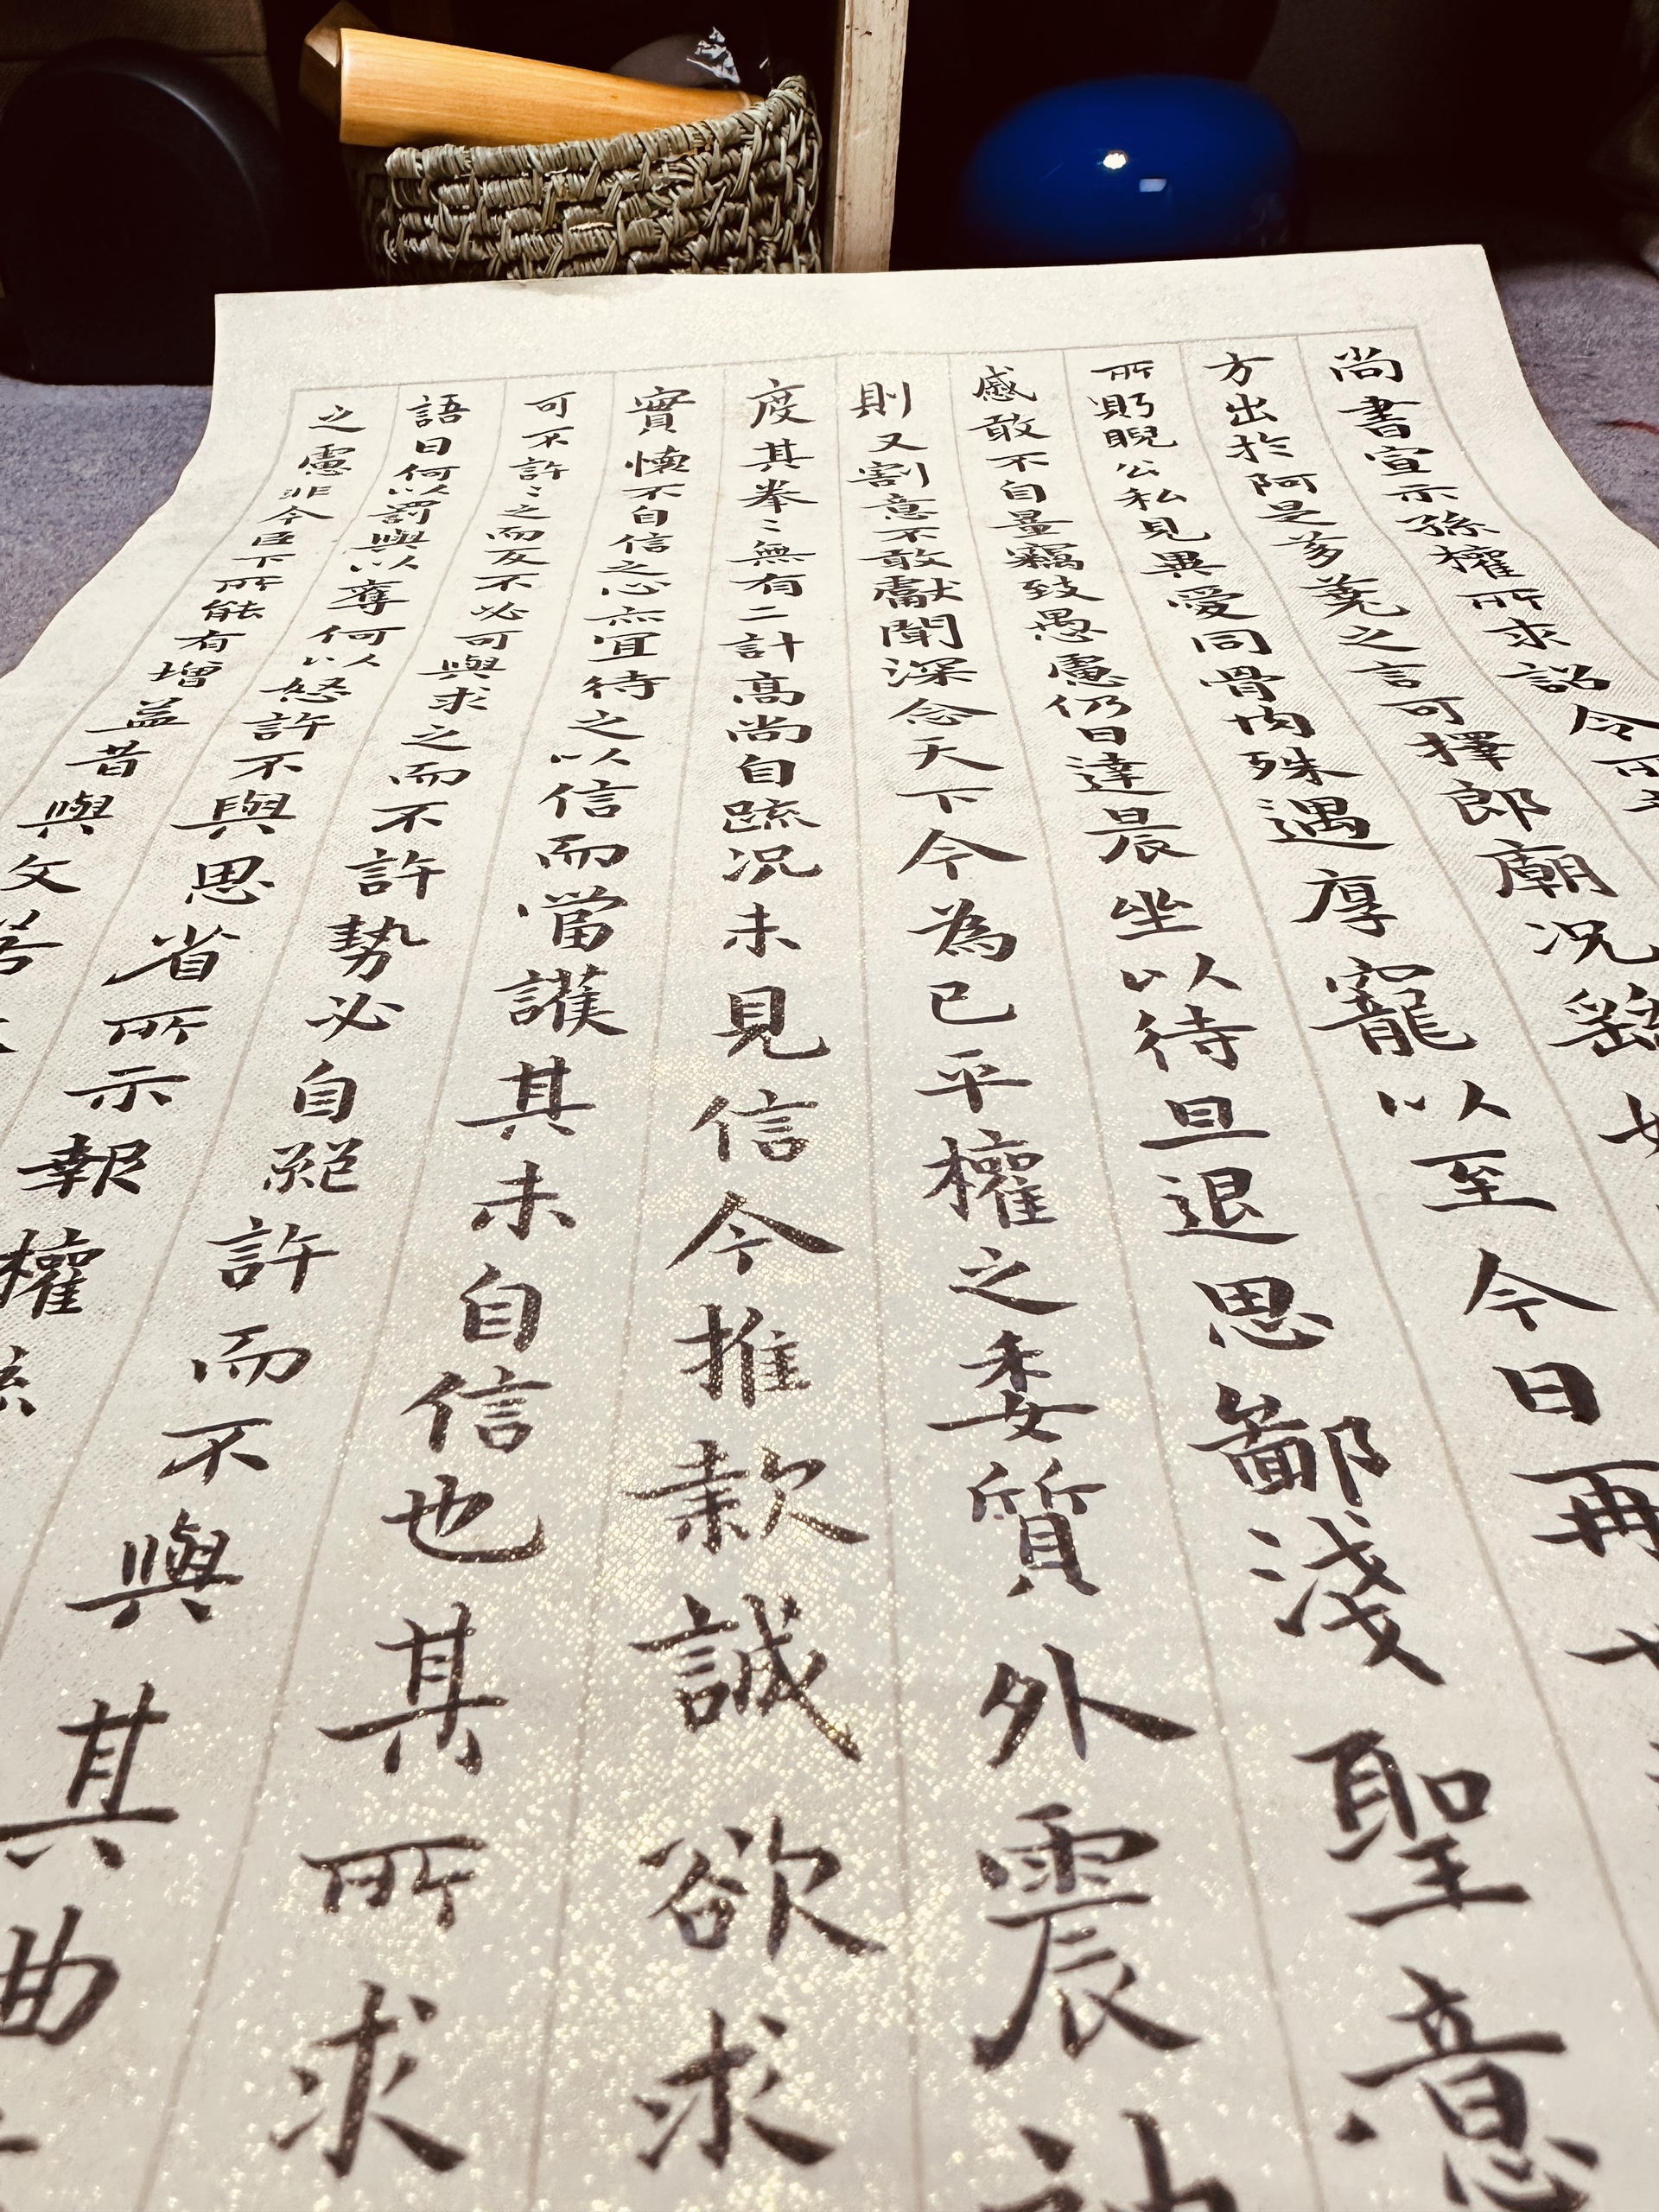 尚書宣示孫權所求詔令所
方出於阿是芻蕘之言可擇郎廟况繇
所眄睨公私見異愛同骨肉殊遇厚寵以至今日再
感敢不自量竊致愚慮仍日達晨坐以待旦退思鄙淺聖意
則又割意不敢獻聞深念天下今為已平權之委質外震神
度其拳〻無有二計高尚自疏况未見信今推款誠欲求
實懷不自信之心亦宜待之以信而當護其未自信也其所求
可不許〻之而反不必可與求之而不許勢必自絕許而不與其曲
語曰何以罰與以奪何以怒許不與思省所示報權疏
之慮非今臣下所能有增益昔與文若